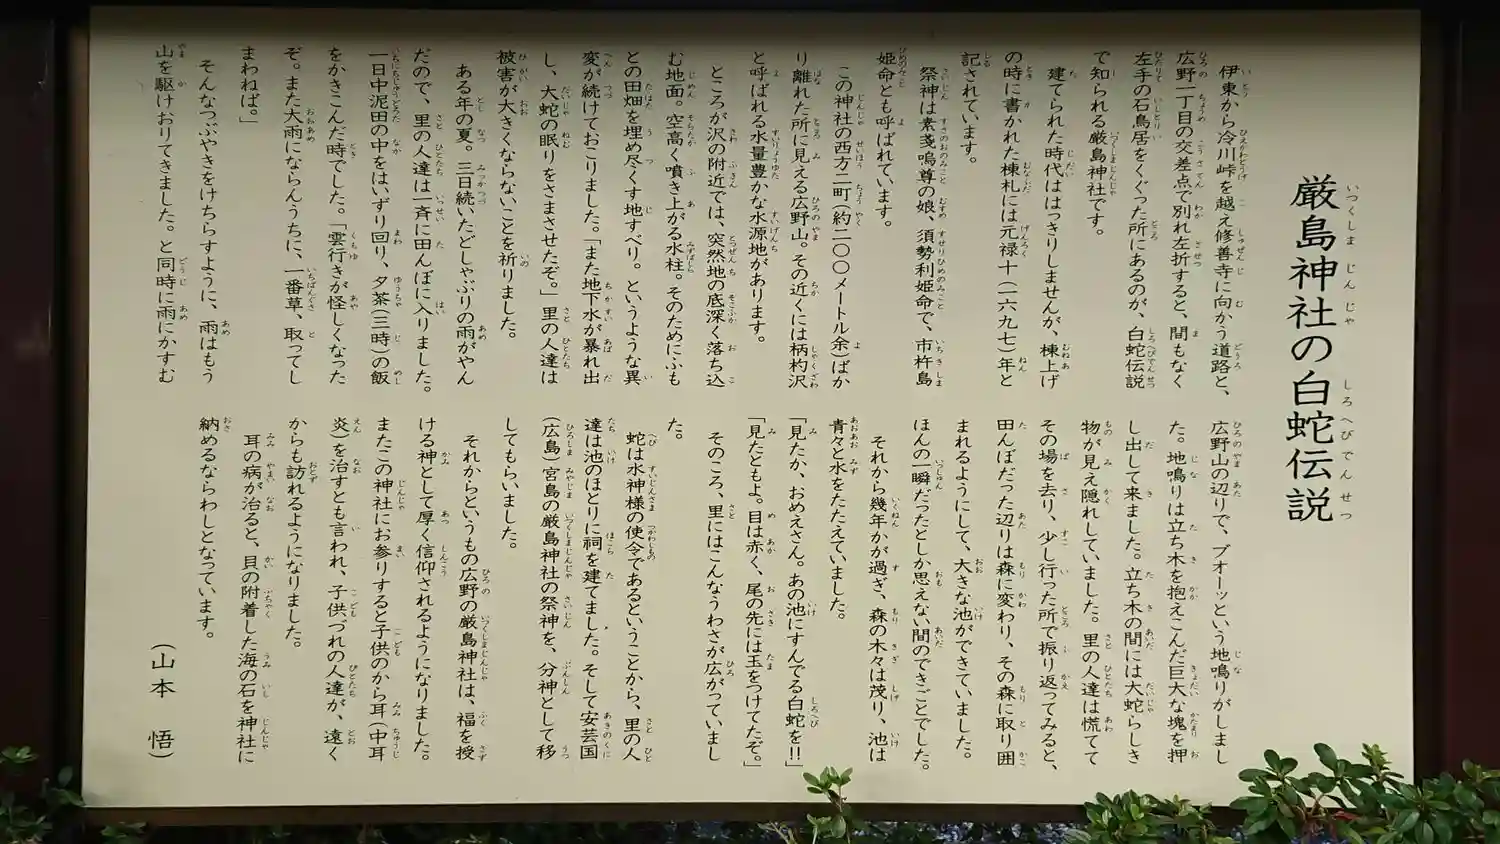 厳島神社の白蛇伝説
伊東から冷川峠を越え修善寺に向かう道路と、
広野一丁目の交差点で別れ左折すると、間もなく
左手の石鳥居をくぐった所にあるのが、白蛇伝説
で知られる厳島神社です。
建てられた時代ははっきりしませんが、棟上げ
の時に書かれた棟札には元禄十(一六九七)年と
記されています。
祭神は素戔嗚尊の娘、須勢利姫命で、市杵島
姫命とも呼ばれています。
この神社の西方二町(約二〇〇メートル余)ばか
り離れた所に見える広野山。その近くには柄杓沢
と呼ばれる水量豊かな水源地があります。
ところが沢の附近では、突然地の底深く落ち込
む地面。空高く噴き上がる水柱。そのためにふも
との田畑を埋め尽くす地すべり。というような異
変が続けておこりました。「また地下水が暴れ出
し、大蛇の眠りをさまさせたぞ。」里の人達は
被害が大きくならないことを祈りました。
ある年の夏。三日続いたどしゃぶりの雨がやん
だので、里の人達は一斉に田んぼに入りました。
一日中泥田の中をはいずり回り、夕茶(三時)の飯
をかきこんだ時でした。「雲行きが怪しくなった
ぞ。また大雨にならんうちに、一番草、取ってし
まわねば。」
そんなつぶやきをけちらすように、雨はもう
山を駆けおりてきました。と同時に雨にかすむ
広野山の辺りで、ブオーッという地鳴りがしまし
た。地鳴りは立ち木を抱えこんだ巨大な塊を押
し出して来ました。立ち木の間には大蛇らしき
物が見え隠れしていました。里の人達は慌てて
その場を去り、少し行った所で振り返ってみると、
田んぼだった辺りは森に変わり、その森に取り囲
まれるようにして、大きな池ができていました。
ほんの一瞬だったとしか思えない間のできごとでした。
それから幾年かが過ぎ、森の木々は茂り、池は
青々と水をたたえていました。
「見たか、おめえさん。あの池にすんでる白蛇を!!」
「見たともよ。目は赤く、尾の先には玉をつけてたぞ。」
そのころ、里にはこんなうわさが広がっていまし
た。
蛇は水神様の使令であるということから、里の人
達は池のほとりに祠を建てました。そして安芸国
(広島)宮島の厳島神社の祭神を、分神として移
してもらいました。
それからというもの広野の厳島神社は、福を授
ける神として厚く信仰されるようになりました。
またこの神社にお参りすると子供のから耳(中耳
炎)を治すとも言われ、子供づれの人達が、遠く
からも訪れるようになりました。
耳の病が治ると、貝の附着した海の石を神社に
納めるならわしとなっています。
(山本 悟)